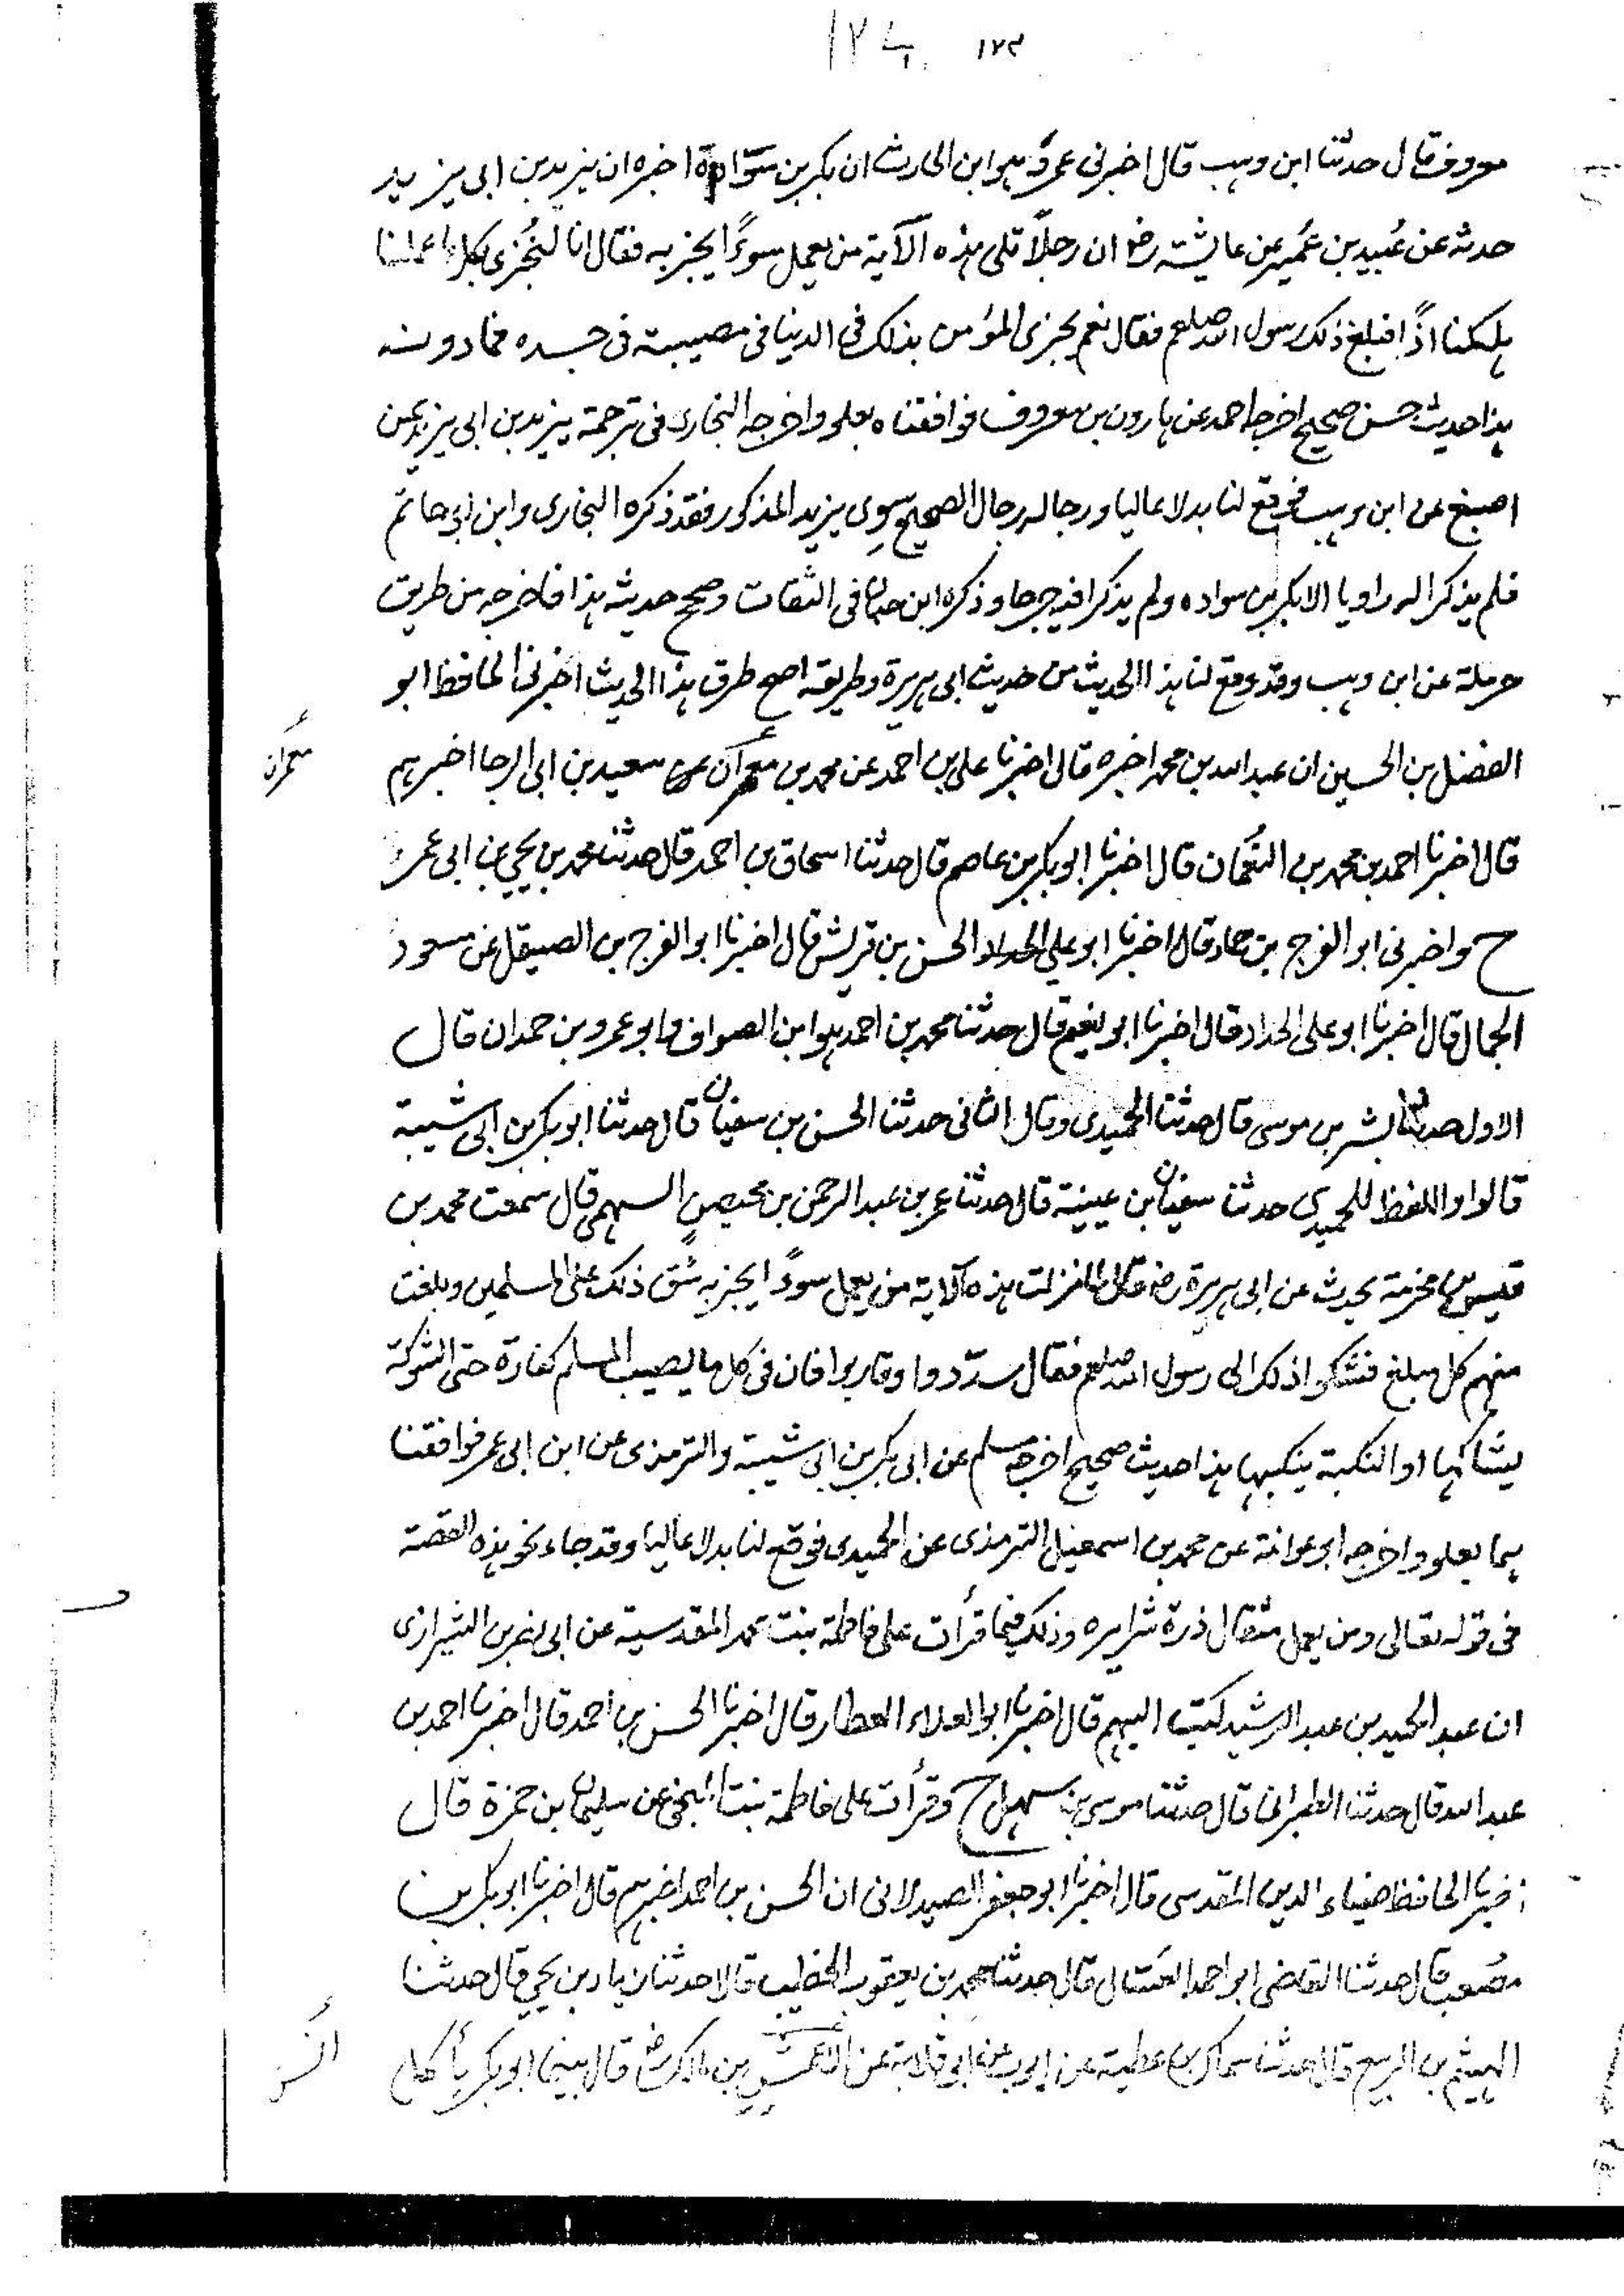 ١٢٤ ١٢٤
معروف قال حدثنا ابن وهب قال اخبرنی عمرو هو ابن الحارث ان بکر بن سوادة اخبره ان یزید بن ابی یزید
حدثه عن عُبید بن عُمیر عن عایشة رض ان رجلاً تلی هذه الآیة من یعمل سوءً ایجز به فقال انا لنُجزی بکل ما عملنا
هلکنا اذًا فبلغ ذلک رسول الله صلعم فقال نعم یجزی المؤمن بذلک فی الدنیا فی مصیبة فی جسده فما دونه
هذا حدیث حسن صحیح اخرجه احمد عن هارون بن معروف فوافقناه بعلو واخرجه البخاری فی ترجمة یزید بن ابی یزید عن
اصبغ عن ابن وهب فوقع لنا بدلا عالیا ورجاله رجال الصحیح سِوی یزید المذکور فقد ذکره البخاری وابن ابی حاتم
فلم یذکرا له راویا الا بکر بن سواده ولم یذکرا فیه جرحا وذکره ابن حبان فی الثقات وصحح حدیثه هذا فاخرجه من طریق
حرملة عن ابن وهب وقد وقع لنا هذا الحدیث من حدیث ابی هریرة وطریقه اصح طرق هذا الحدیث اخبرنی الحافظ ابو
الفضل بن الحسین ان عبد الله بن محمد اخبره قال اخبرنا علی بن احمد عن محمد بن معمر ان سعید بن ابی الرجا اخبرهم
معمر ان
قال اخبرنا احمد بن محمد بن النُعمان قال اخبرنا ابو بکر بن عاصم قال حدثنا اسحاق بن احمد قال حدثنا محمد بن یحیی بن ابی عمر
ح واخبرنی ابو الفرج بن حماد قال اخبرنا ابو علی الحداد الحسن بن قریش قال اخبرنا ابو الفرج بن الصیقل عن مسعود
الجمال قال اخبرنا ابو علی الحداد قال اخبرنا ابو نعیم قال حدثنا محمد بن احمد هو ابن الصواف وابو عمرو بن حمدان قال
الاول حدثنا بشر بن موسی قال حدثنا الحمیدی وقال الثانی حدثنا الحسن بن سفیان قال حدثنا ابو بکر بن ابی شیبة
قالوا واللفظ للحمیدی حدثنا سفیان بن عیینة قال حدثنا عمر بن عبد الرحمن بن محیصن السهمی قال سمعت محمد بن
قیس بن مخرمة یحدث عن ابی هریرة رض قال لما نزلت هذه الآیة من یعمل سوءً ایجز به شق ذلک علی المسلمین وبلغت
منهم کل مبلغ فشکوا ذلک الی رسول الله صلعم فقال سدّدوا وقاربوا فان فی کل ما یصیب المسلم کفارة حتی الشوکة
یشاکها او النکبة ینکبها هذا حدیث صحیح اخرجه مسلم عن ابی بکر بن ابی شیبة والترمذی عن ابن ابی عمر فوافقنا
هما بعلو واخرجه ابو عوانة عن محمد بن اسمعیل الترمذی عن الحمیدی فوقع لنا بدلا عالیا وقد جاء نحو هذه القصة
فی قوله تعالی ومن یعمل مثقال ذرة شرا یره وذلک فیما قرأت علی فاطمة بنت محمد المقدسیة عن ابی نصر بن الشیرازی
ان عبد الحمید بن عبد الرشید کتب الیهم قال اخبرنا ابو العلاء العطار قال اخبرنا الحسن بن احمد قال اخبرنا احمد بن
عبد الله قال حدثنا الطبرانی قال حدثنا موسی بن سهل ح وقرأت علی فاطمة بنت المنجی عن سلیمان بن حمزة قال
اخبرنا الحافظ ضیاء الدین المقدسی قال اخبرنا ابو جعفر الصیدلانی ان الحسن بن احمد اخبرهم قال اخبرنا ابو بکر بن
مصعب قال حدثنا القاضی ابو احمد العسّال قال حدثنا محمد بن یعقوب الخطیب قالا حدثنا زیاد بن یحیی قال حدثنا
الهیثم بن الربیع قال حدثنا سماک بن عطیة عن ایوب عن ابی قلابة عن بن مالک رض قال بینما ابو بکر یأکل
انس